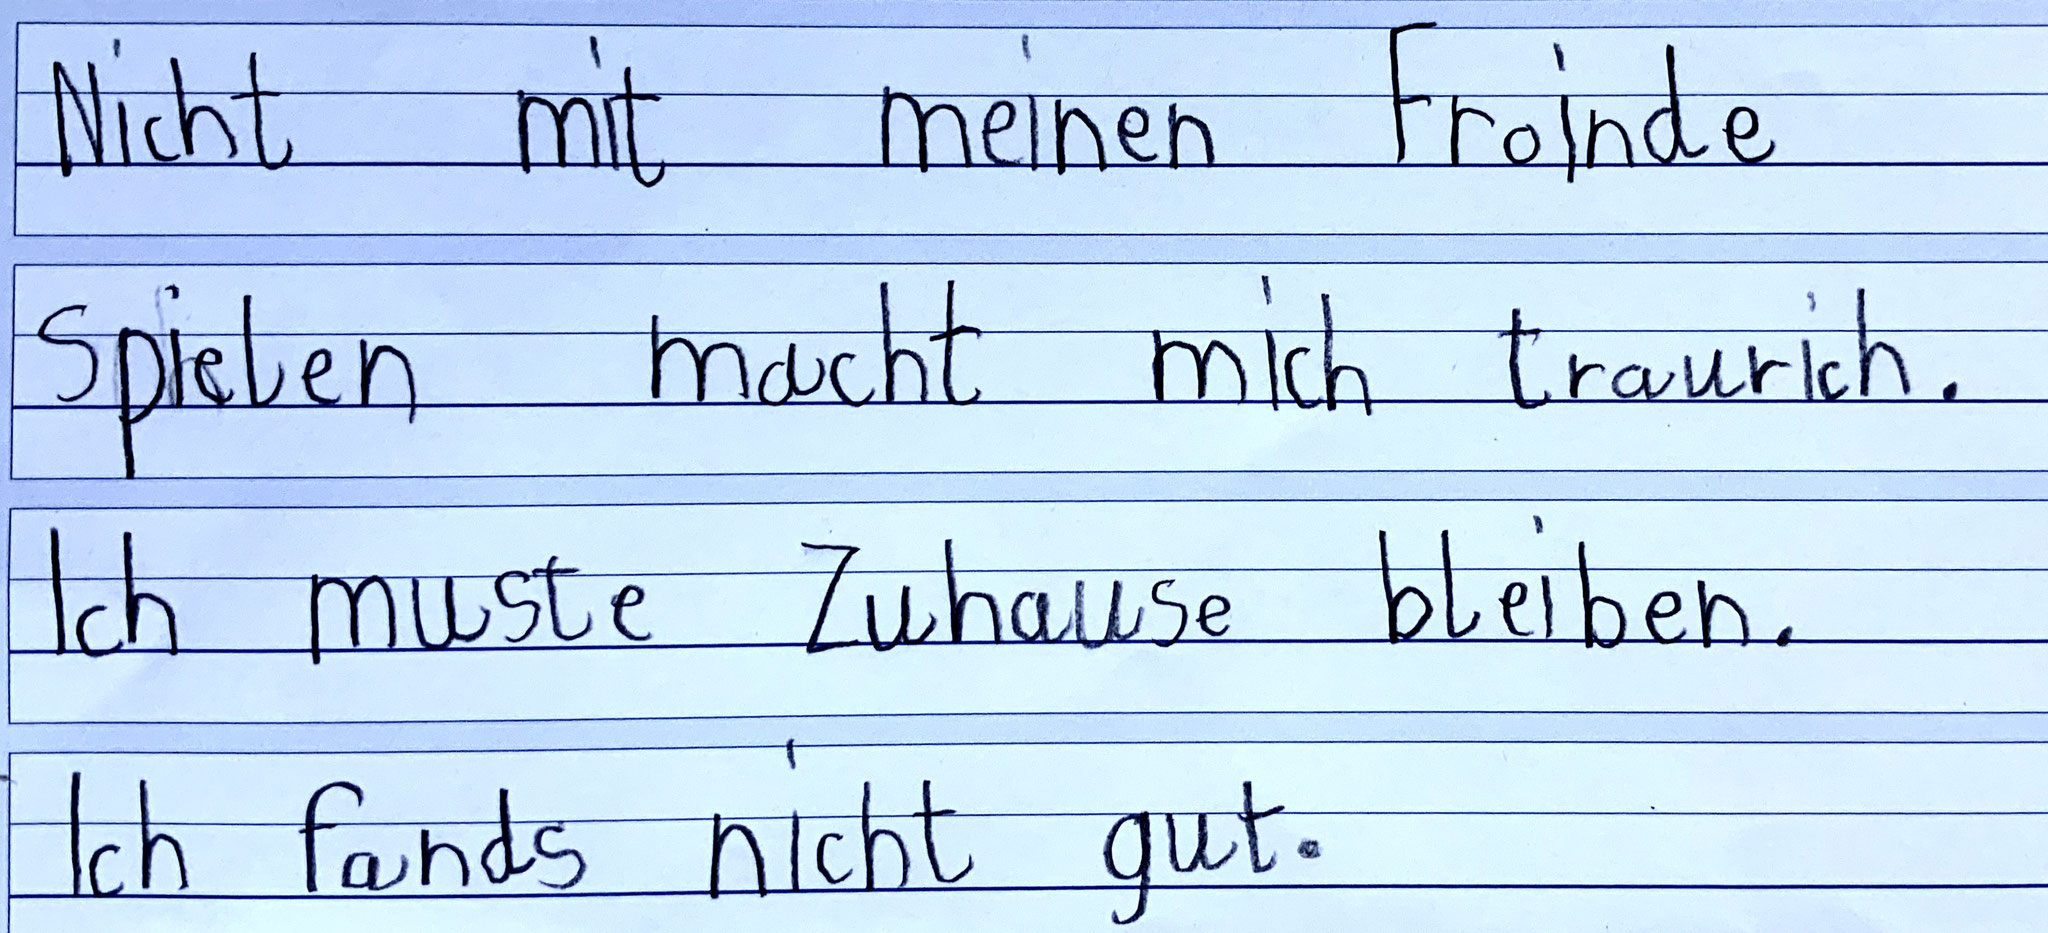 Nicht mit meinen Froinde
Spielen macht mich traurich.
Ich muste Zuhause bleiben.
Ich fands nicht gut.